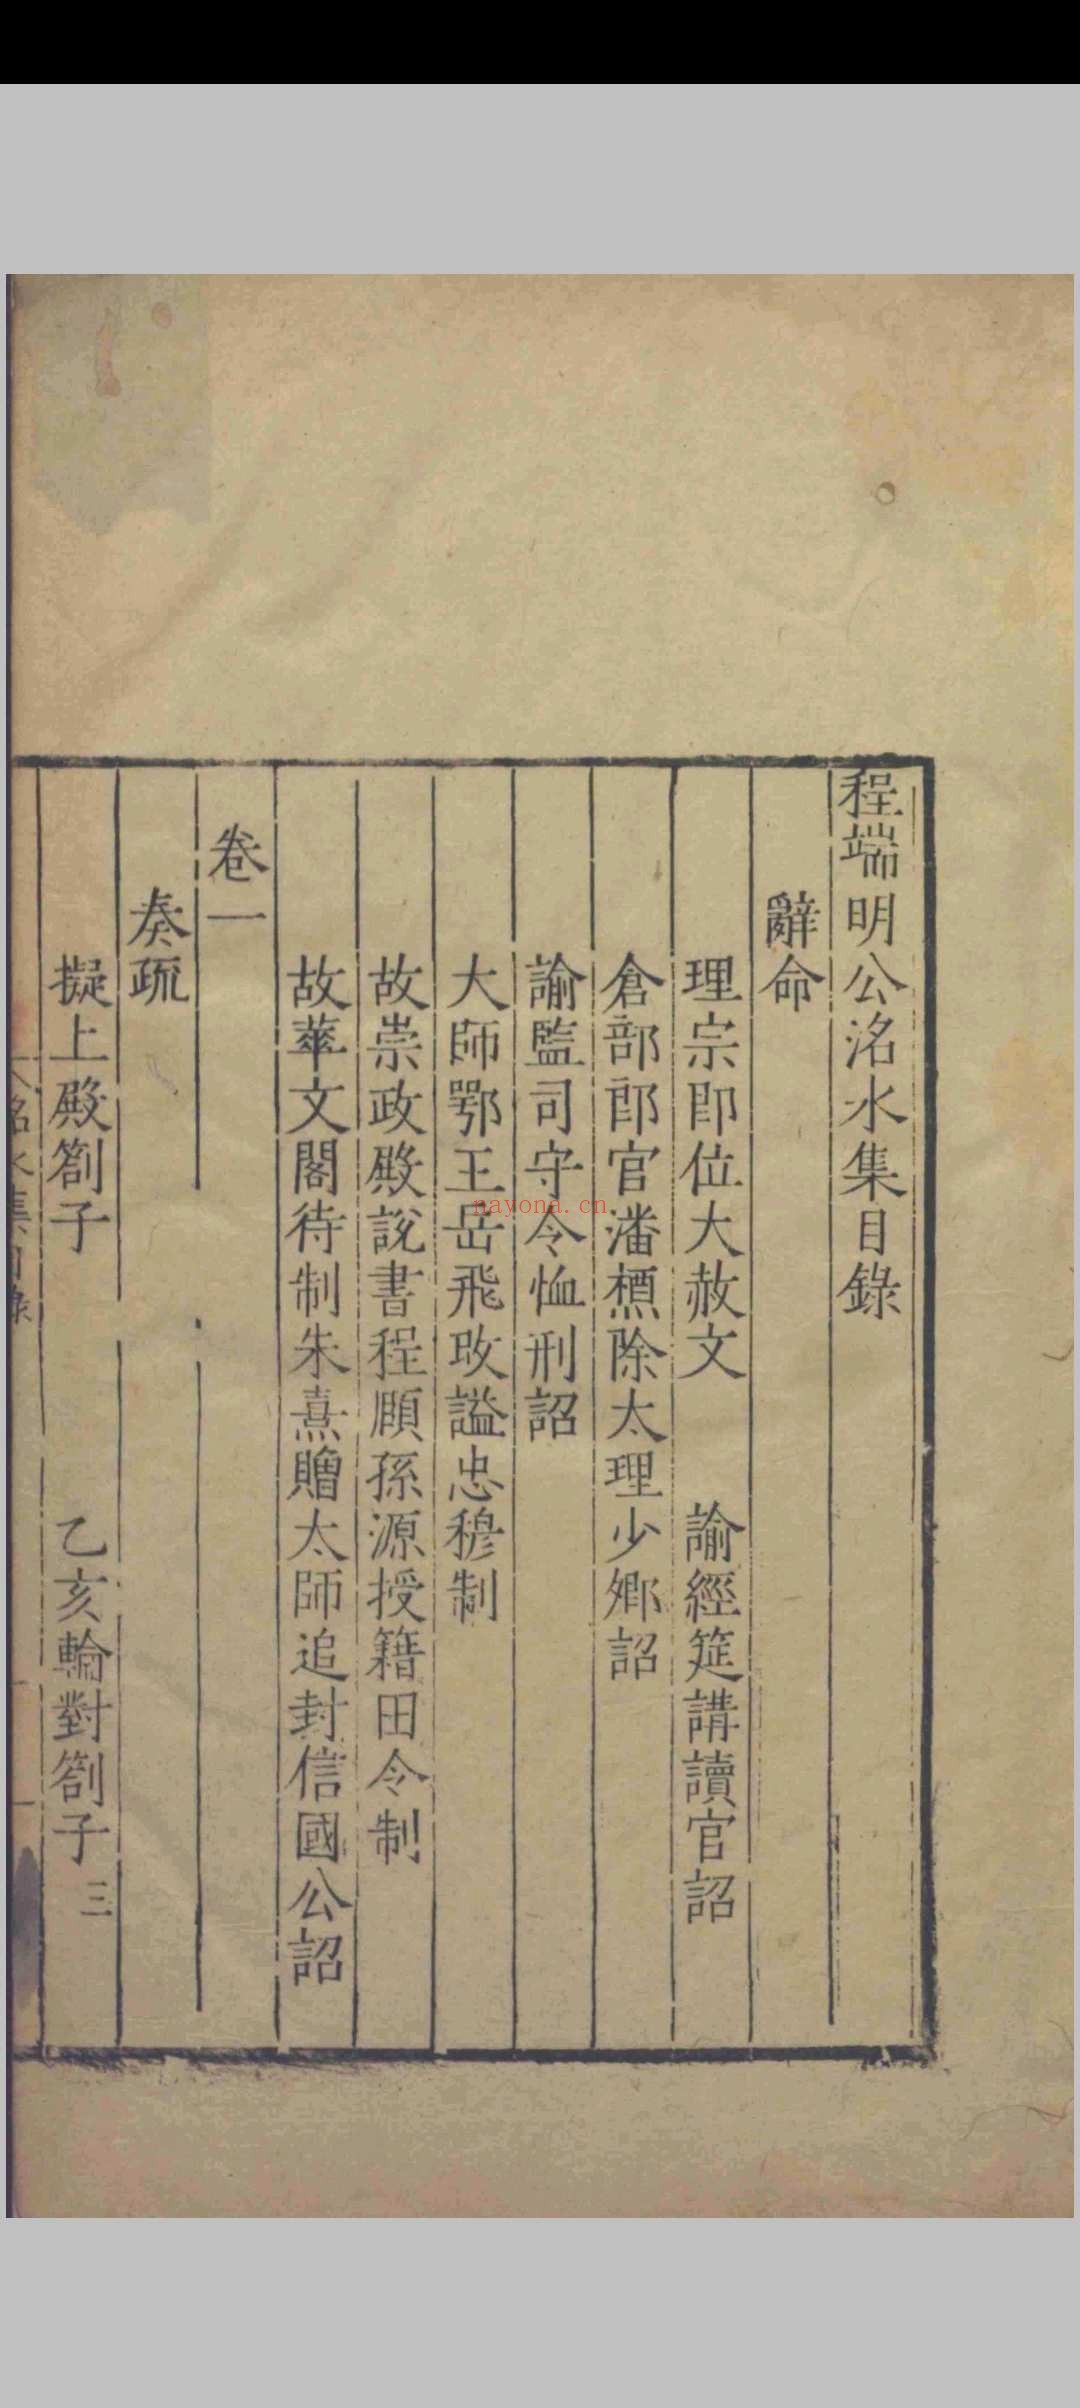 程端明公洺水集目錄
辭命
理宗即位大赦文　諭經筵講讀官詔
倉部郎官潘檟除太理少卿詔
諭監司守令恤刑詔
大師鄂王岳飛改謚忠穆制
故崇政殿說書程頤孫源授籍田令制
故華文閣待制朱熹贈太師追封信國公詔
卷一
奏疏
擬上殿劄子　乙亥輪對劄子三
nayona.cn